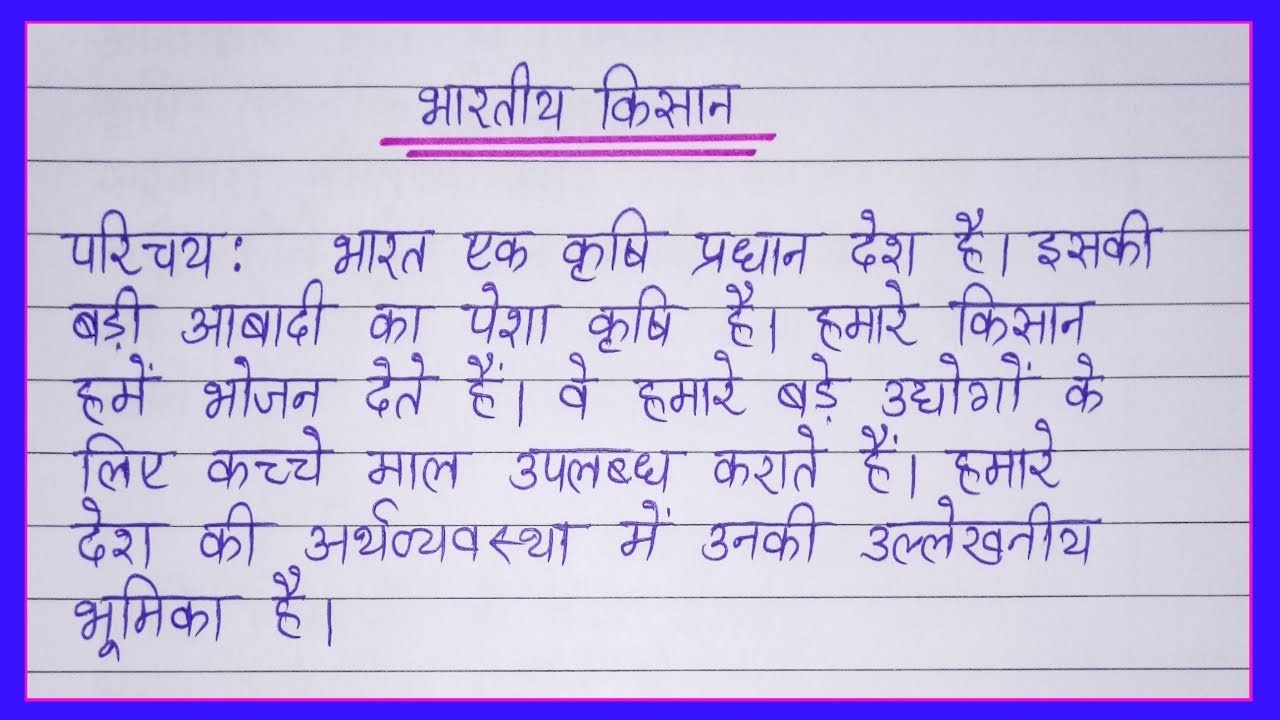 भारतीय किसान
परिचय: भारत एक कृषि प्रधान देश है। इसकी
बड़ी आबादी का पेशा कृषि है। हमारे किसान
हमें भोजन देते हैं। वे हमारे बड़े उद्योगों के
लिए कच्चे माल उपलब्ध कराते हैं। हमारे
देश की अर्थव्यवस्था में उनकी उल्लेखनीय
भूमिका है।